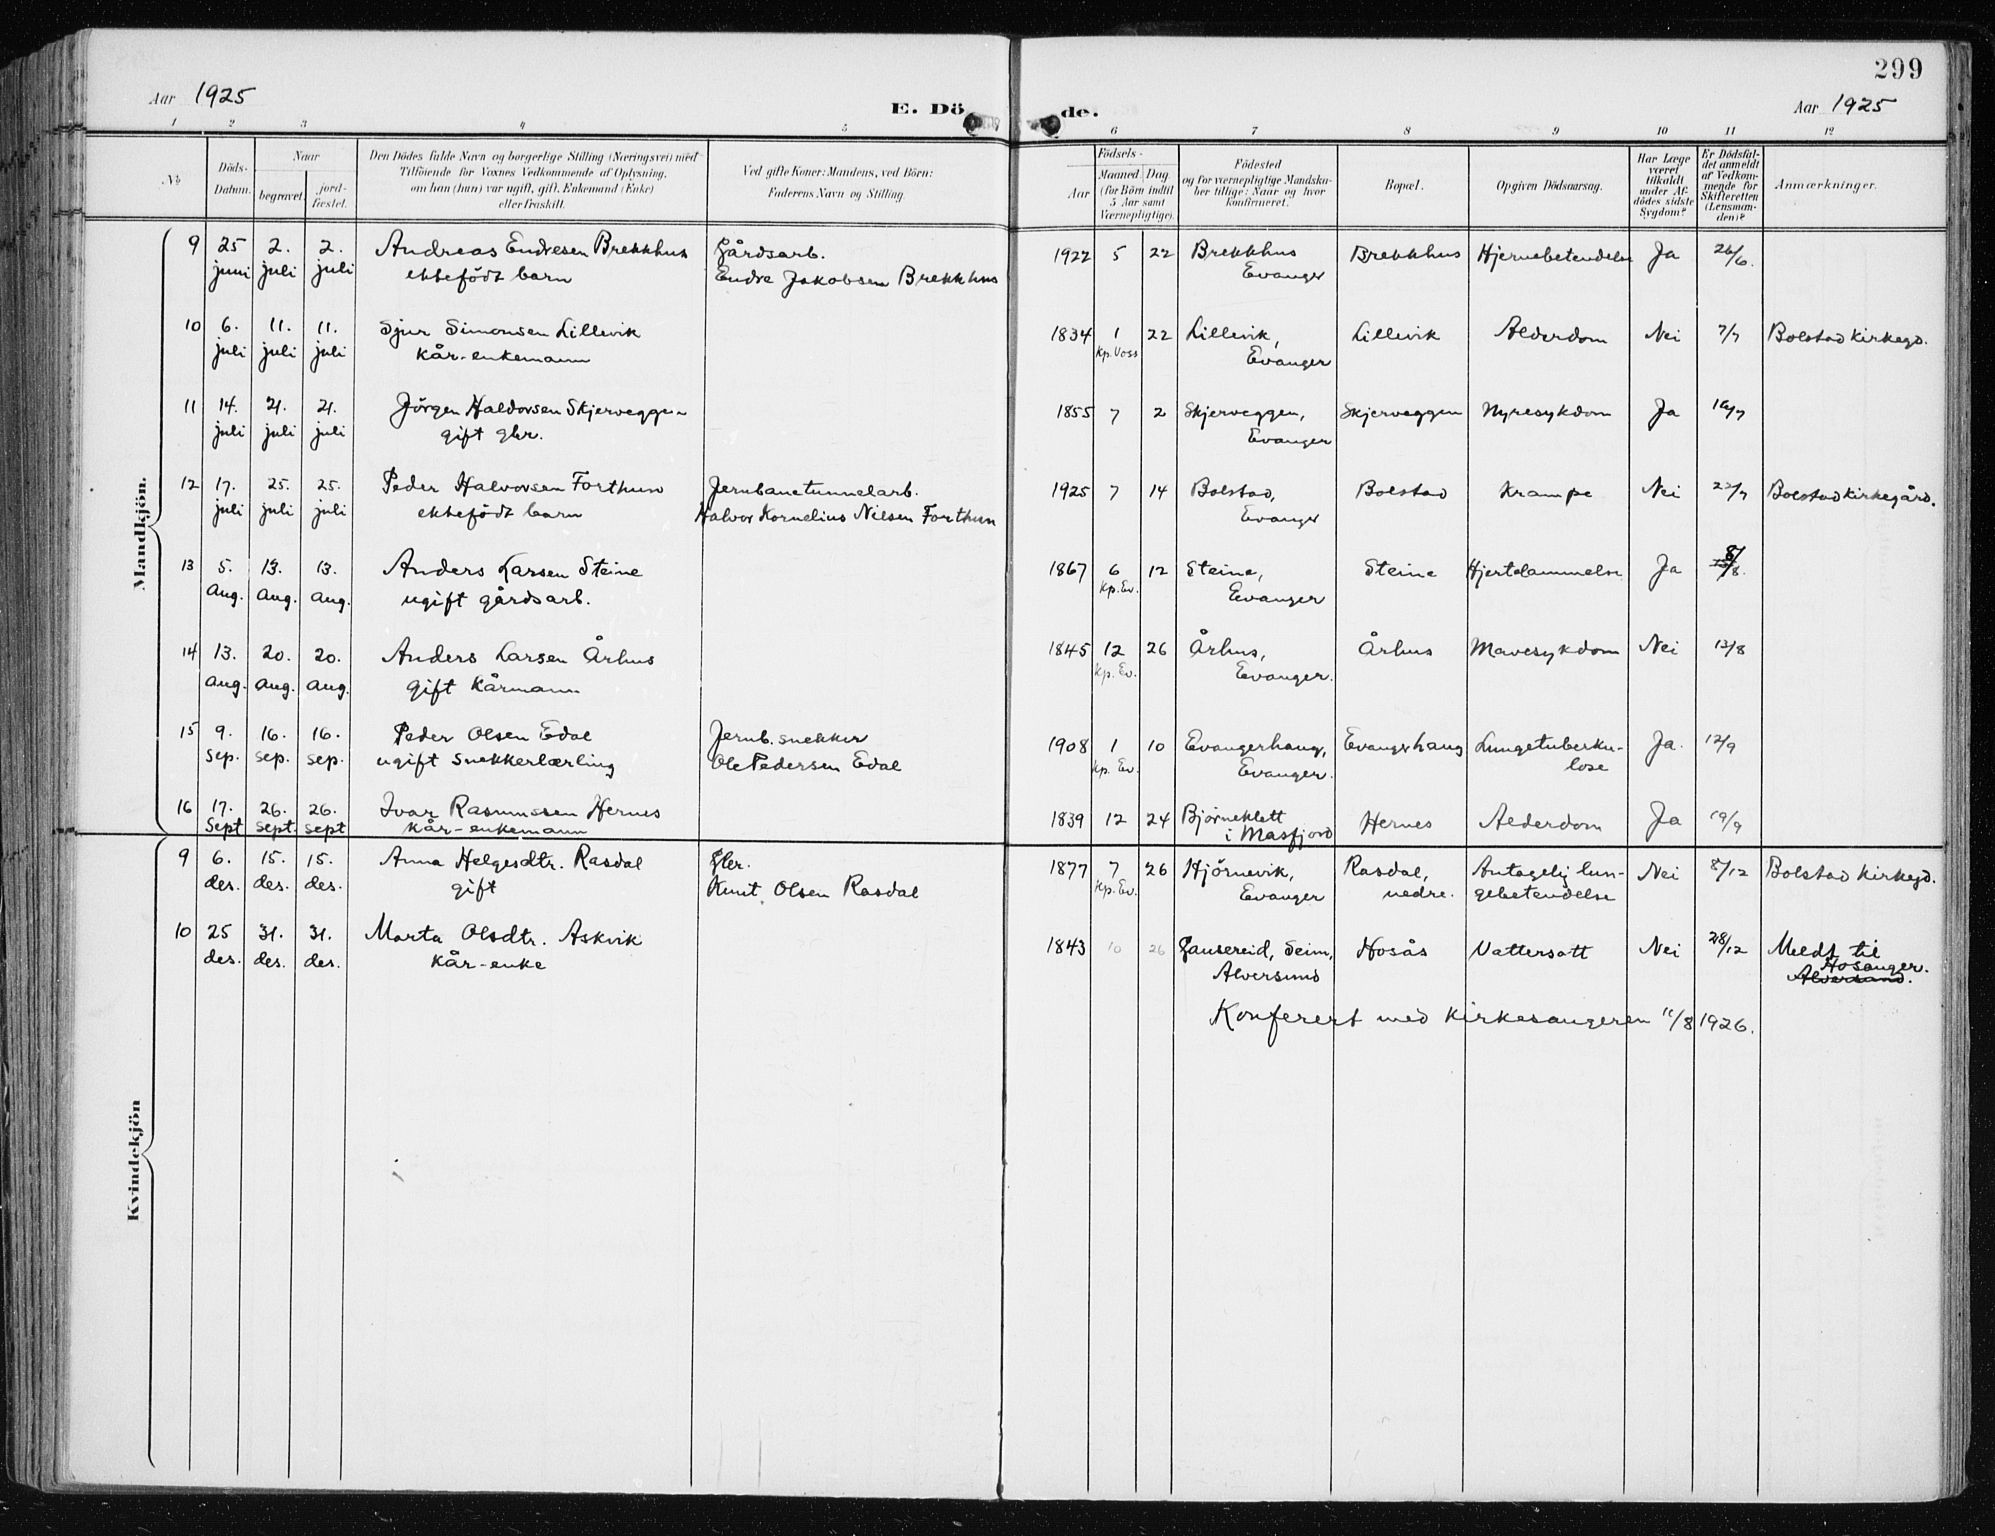 299
Aar 1925
E. Dö de.
Aar 1925
1 2 3 4 5 6 7 8 9 10 11 12
No
Döds-
Datum.
Naar
begravet.
jord-
fæstet.
Den Dödes fulde Navn og borgerlige Stilling (Næringsvei) med
Tilföiende for Voxnes Vedkommende af Oplysning,
om han (hun) var ugift, gift, Enkemand (Enke)
eller fraskilt.
Ved gifte Koner: Mandens, ved Börn:
Faderens Navn og Stilling.
Födsels-
Aar
Maaned Dag
(for Börn indtil
5 Aar samt
Værnepligtige).
Födested
og for værnepligtige Mandska-
ber tillige: Naar og hvor
konfirmeret.
Bopæl.
Opgiven Dödsaarsag.
Har Læge
været
tilkaldt
under Af-
dödes sidste
Sygdom?
Er Dödsfal-
det anmeldt
af Vedkom-
mende for
Skifteretten
(Lensman-
den)?
Anmærkninger.
Mandkjön.
9 25 2. 2. Andreas Endresen Brekkhus Gårdsarb. 1922 5 22 Brekkhus Brekkhus Hjernebetendelse Ja 26/6.
juni juli juli ektefödt barn Endre Jakobsen Brekkhus Evanger
10 6. 11. 11. Sjur Simonsen Lillevik 1834 1 22 Lillevik, Lillevik Alderdom Nei 7/7 Bolstad kirkegd.
juli juli juli kår-enkemann Kp. Voss Evanger
11 14. 21. 21. Jörgen Haldorsen Skjerveggen 1855 7 2 Skjerveggen, Skjerveggen Nyresykdom Ja 16/7
juli juli juli gift gbr. Evanger
12 17. 25. 25. Peder Halvorsen Forthun Jernbanetunnelarb. 1925 7 14 Bolstad, Bolstad Krampe Nei 22/7 Bolstad kirkegård.
juli juli juli ektefödt barn Halvor Kornelius Nilsen Forthun Evanger
13 5. 13. 13. Anders Larsen Steine 1867 6 12 Steine, Steine Hjertelammelse Ja 8/8.
Aug. Aug. Aug. ugift gårdsarb. Kp. Ev. Evanger
14 13. 20. 20. Anders Larsen Århus 1845 12 26 Århus, Århus Mavesykdom Nei 13/8
Aug. Aug. Aug. gift kårmann Kp. Ev. Evanger.
15 9. 16. 16. Peder Olsen Edal Jernb. snekker 1908 1 10 Evangerhaug, Evangerhaug Lungetuberku- Ja. 12/9
sep. sep. sep. ugift snekkerlærling Ole Pedersen Edal Kp. Ev. Evanger. lose
16 17. 26. 26. Ivar Rasmussen Hernes 1839 12 24 Bjørneklett Hernes Alderdom Ja 19/9
Sept Sept. Sept kår-enkemann i Masfjord
Kvindekjön
9 6. 15. 15. Anna Helgesdtr. Rasdal Gbr. 1877 7 26 Hjörnevik, Rasdal, Antagelig lun- Nei 8/12 Bolstad kirkegd.
des. des. des. gift Knut Olsen Rasdal Kp. Ev. Evanger nedre. gebetendelse
10 25 31. 31. Marta Olsdtr. Askvik 1843 10 26 Gausereid, Seim, Hosås Vattersott Nei 28/12 Meldt til
des. des. des. kår-enke Alversund Hosanger.
Alversund.
Konferert med kirkesangeren 11/8 1926.